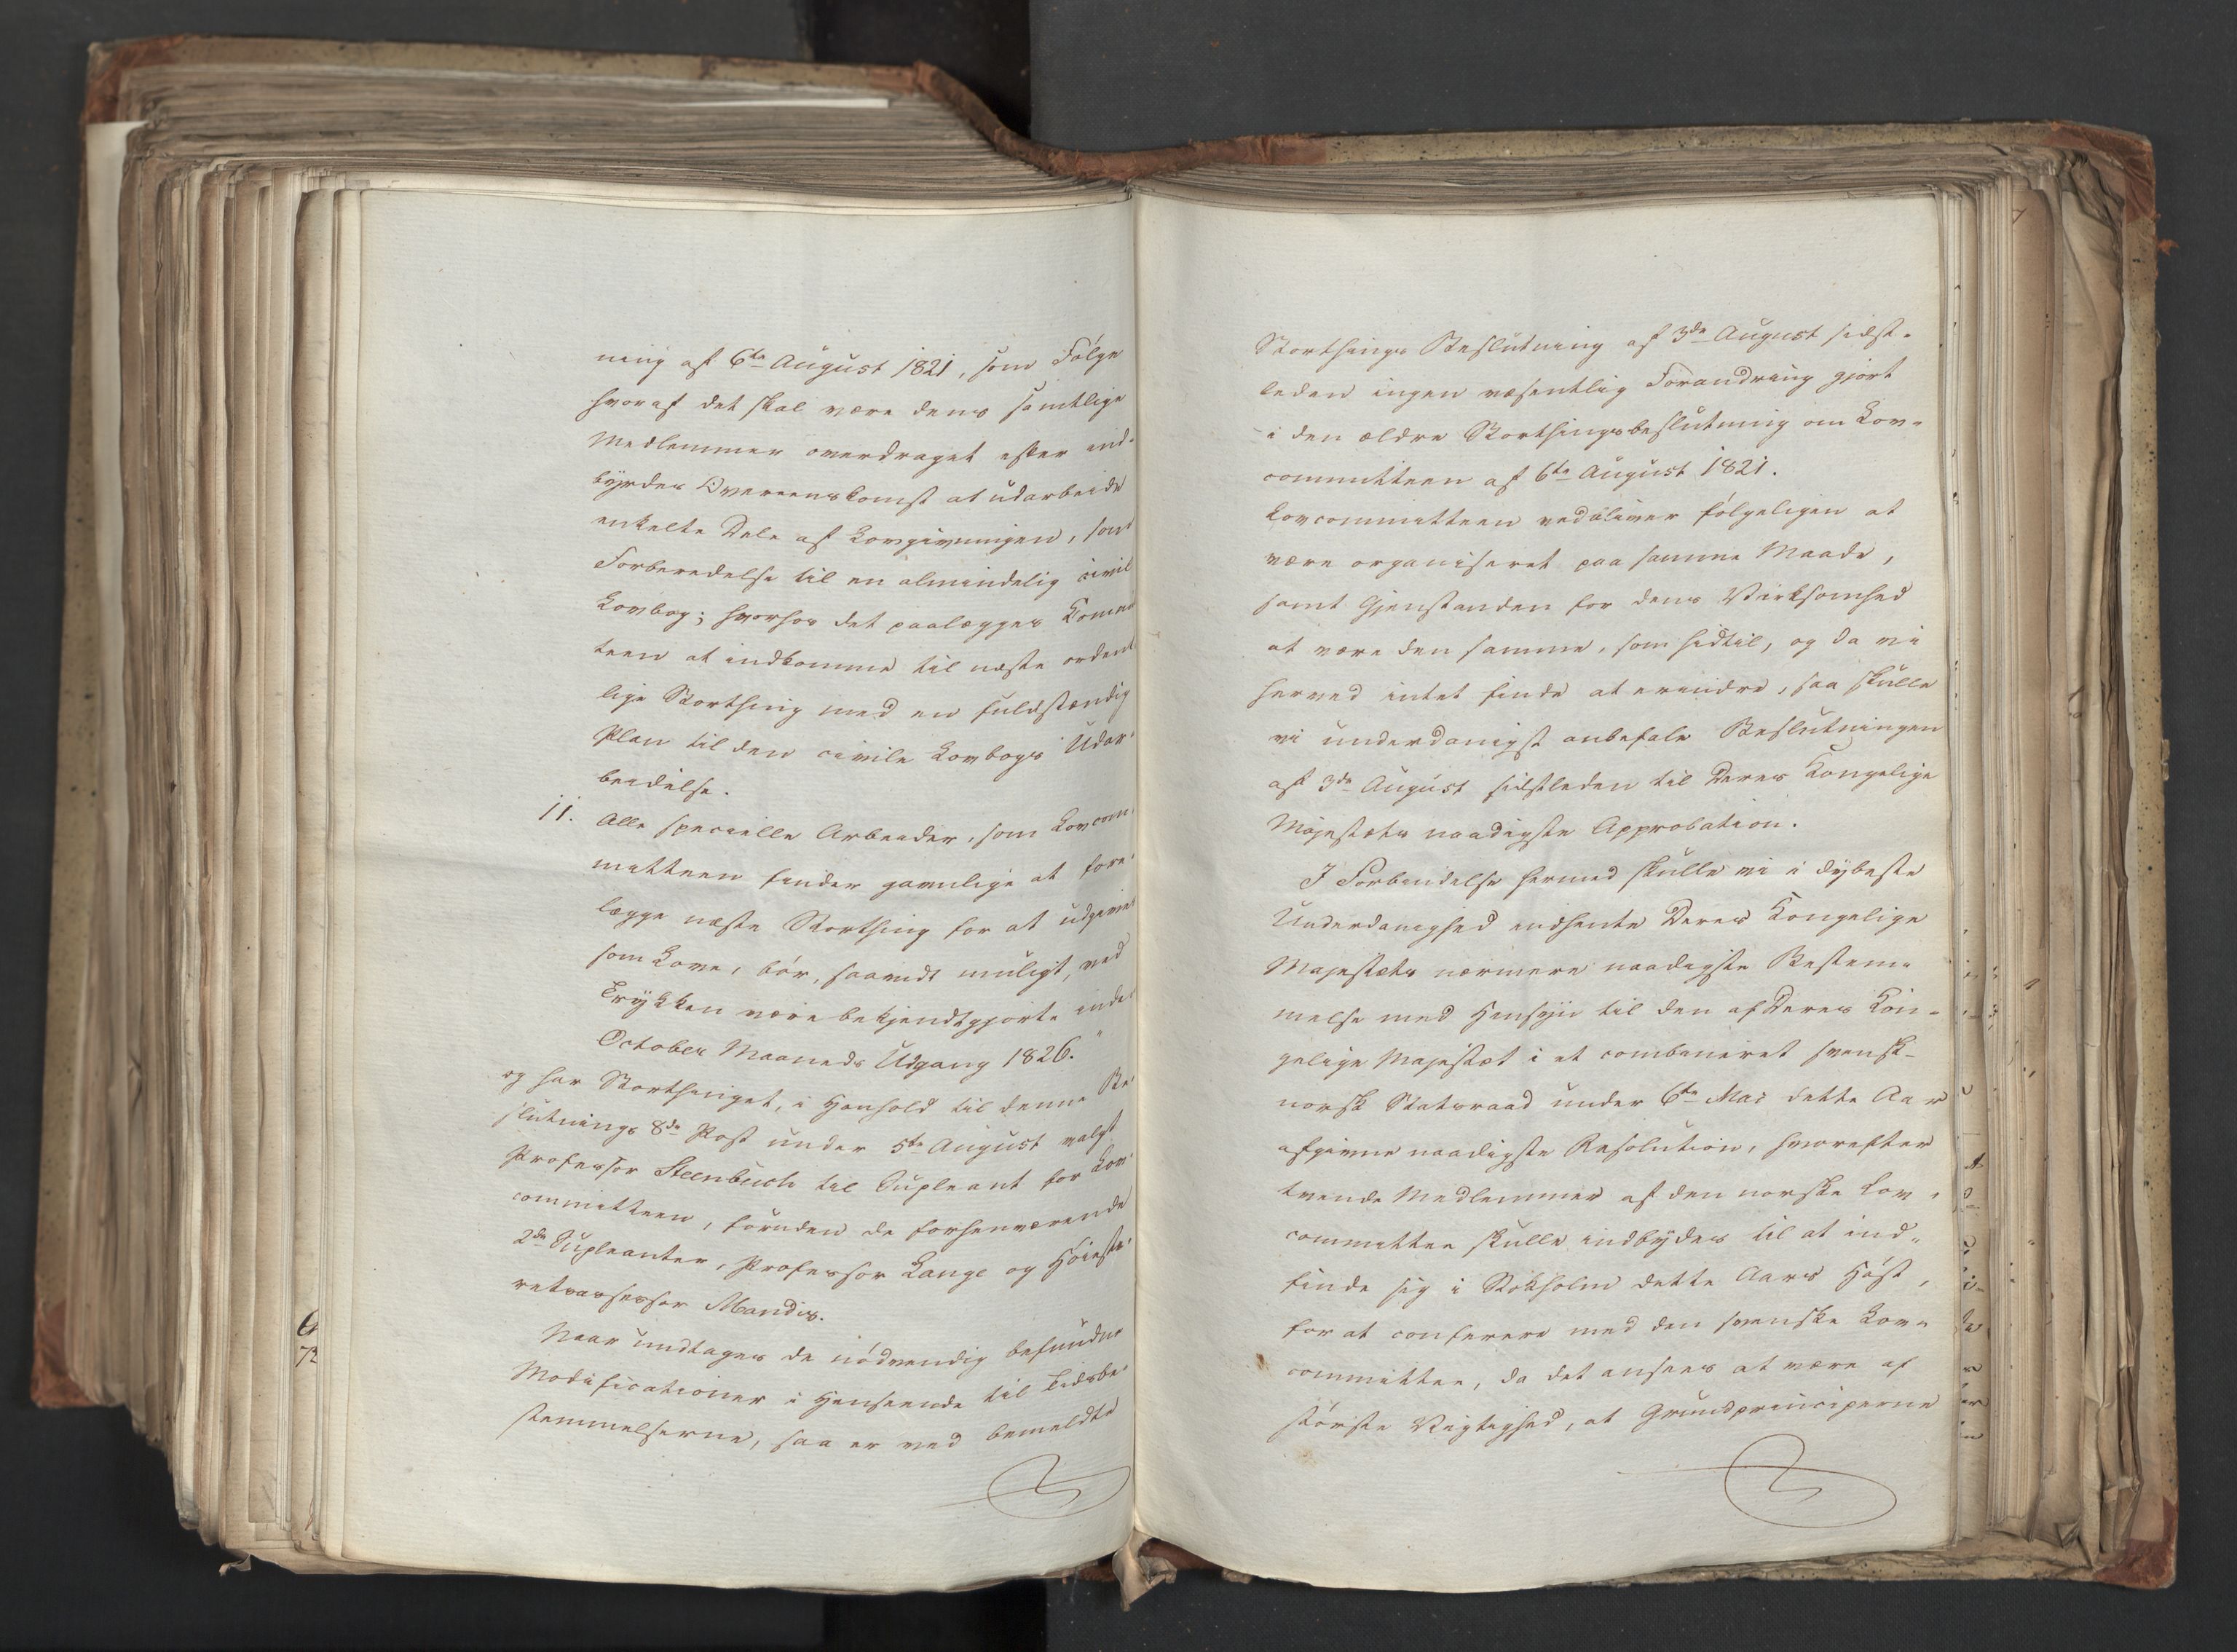 ning af 6te August 1821, som Følge
hvoraf det skal være dens samtlige
Medlemmer overdraget efter ind-
byrdes Overeenskomst at udarbeide
enkelte Dele af Lovgivningen, som
Forberedelse til en almindelig civil
Lovbog; hvorhos det paalægges Comit
teen at indkomme til næste ordent
lige Storthing med en fuldstændig
Plan til den civile Lovbogs Udar-
beidelse.
11. Alle specielle Arbeider, som Lovcom
mitteen finder gavnlige at fore-
lægge næste Storthing for at udgives
som Love, bör, saavidt muligt, ved
Trykken være bekjendtgjorte inden
October Maaneds Udgang 1826."
og har Storthinget, i Henhold til denne Be
slutnings 8de Post under 5te August valgt
Professor Steenbuch til Supleant for Lov-
committeen, foruden de forhenværende
2de Supleanter, Professor Lange og Höieste-
retsassessor Mandix.
Naar undtages de nödvendig befundne
Modificationer i Henseende til Tidsbe-
stemmelserne, saa er ved bemeldte
Storthings Beslutning af 3de August sidst-
leden ingen væsentlig Forandring gjort
i den ældre Storthingsbeslutning om Lov-
committeen af 6te August 1821.
Lovcommitteen vedbliver fölgeligen at
være organiseret paa samme Maade,
samt Gjenstanden for dens Virksomhed
at være den samme, som hidtil, og da vi
herved intet finde at erindre, saa skulle
vi underdanigst anbefale Beslutningen
af 3de August sidstleden til Deres Kongelige
Majestæts naadigste Approbation.
I Forbindelse hermed skulle vi i dybeste
Underdanighed indhente Deres Kongelige
Majestæts nærmere naadigste Bestem-
melse med Hensyn til den af Deres Kon-
gelige Majestæt i et combineret svensk-
norsk Statsraad under 6te Mai dette Aar
afgivne naadigste Resolution, hvorefter
tvende Medlemmer af den norske Lov-
committee skulle indbydes til at ind-
finde sig i Stokholm dette Aars Høst,
for at conferere med den svenske Lov-
committee, da det ansees at være af
störste Vigtighed, at Grundprinciperne